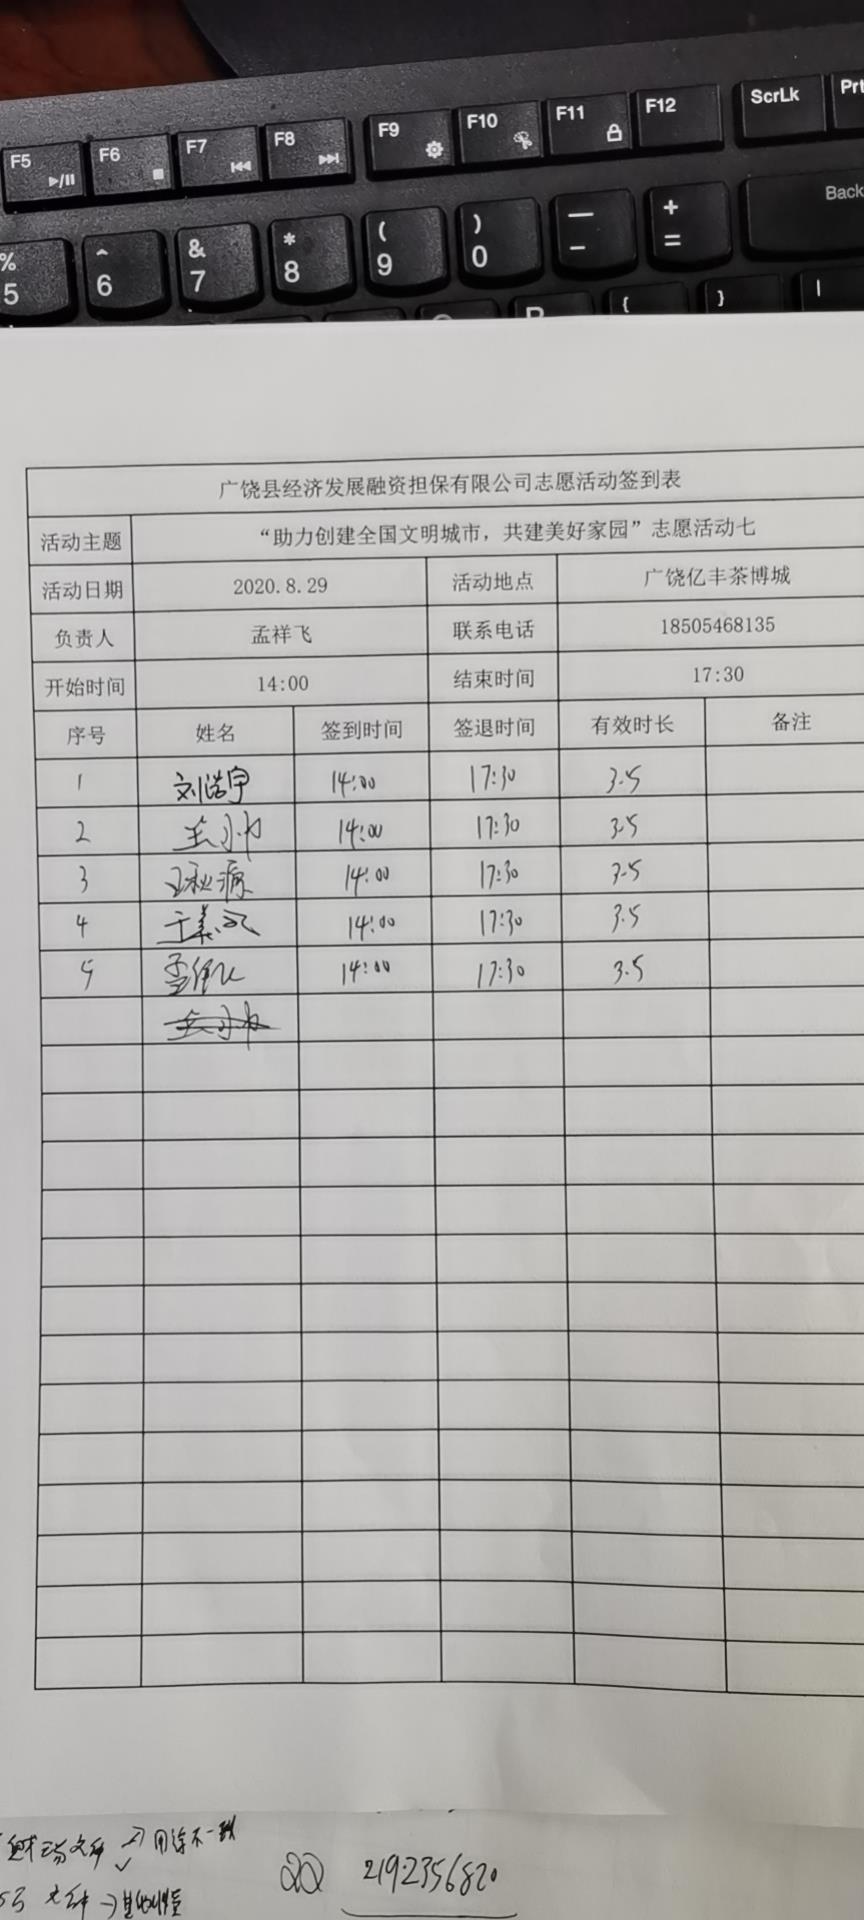 F5 F6 F7 F8 F9 F10 F11 F12 ScrLk Prt
% ^ & * ( ) — + Back
5 6 7 8 9 0 - =
{ } |
广饶县经济发展融资担保有限公司志愿活动签到表
活动主题 “助力创建全国文明城市，共建美好家园”志愿活动七
活动日期 2020.8.29 活动地点 广饶亿丰茶博城
负责人 孟祥飞 联系电话 18505468135
开始时间 14:00 结束时间 17:30
序号 姓名 签到时间 签退时间 有效时长 备注
1 刘浩宇 14:00 17:30 3.5
2 14:00 17:30 3.5
3 14:00 17:30 3.5
4 14:00 17:30 3.5
5 14:00 17:30 3.5
用途不一致
QQ 2192356820